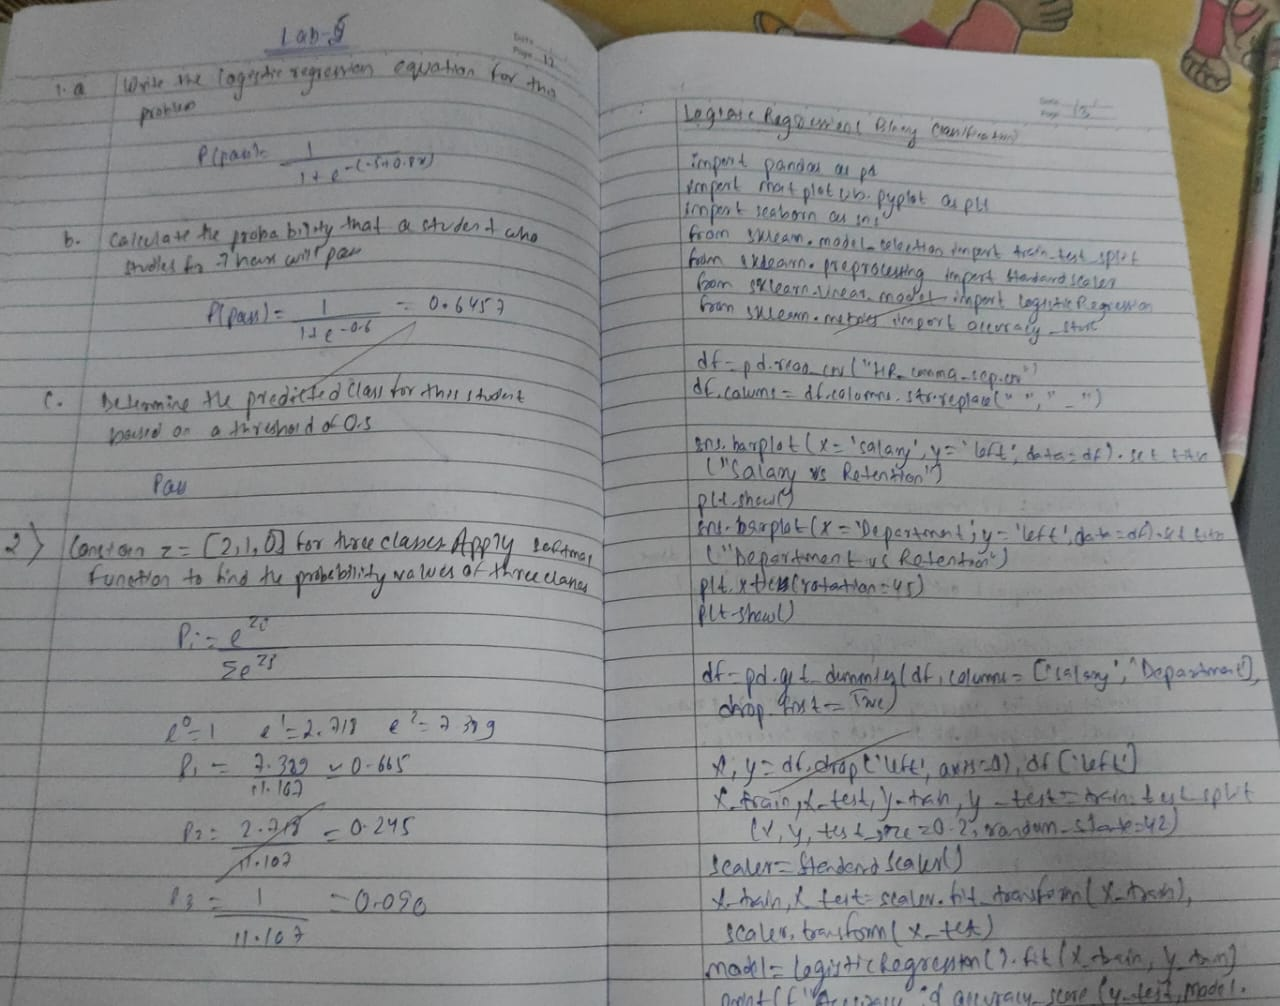 Lab-5
Date
Page 12
1. a Write the logistic regression equation for this
problem
P(pass)= 1
1 + e^-(-5+0.8x)
b. Calculate the probability that a student who
studies for 7 hours will pass
P(pass) = 1 = 0.6457
1+e^-0.6
c. Determine the predicted class for this student
based on a threshold of 0.5
Pass
2) Consider z = [2,1,0] for three classes Apply softmax
function to find the probability values of three classes
Pi = e^zi
Σe^zj
e^0=1 e^1=2.718 e^2=7.389
P1 = 7.389 ≈ 0.665
11.107
P2 = 2.718 = 0.245
11.107
P3 = 1 = 0.090
11.107
Date
Page 13
Logistic Regression (Binary Classification)
import pandas as pd
import matplotlib.pyplot as plt
import seaborn as sns
from sklearn.model_selection import train_test_split
from sklearn.preprocessing import StandardScaler
from sklearn.linear_model import LogisticRegression
from sklearn.metrics import accuracy_score
df = pd.read_csv("HR_comma_sep.csv")
df.columns = df.columns.str.replace(" ","_")
sns.barplot(x='salary', y='left', data=df).set title
("Salary vs Retention")
plt.show()
sns.barplot(x='Department', y='left', data=df).set title
("Department vs Retention")
plt.xticks(rotation=45)
plt.show()
df=pd.get_dummies(df, columns=['salary','Department'],
drop_first=True)
X, y = df.drop('left', axis=1), df['left']
X_train, X_test, y_train, y_test = train_test_split
(X, y, test_size=0.2, random_state=42)
scaler=StandardScaler()
X_train, X_test = scaler.fit_transform(X_train),
scaler.transform(X_test)
model=LogisticRegression().fit(X_train, y_train)
print(f"Accuracy accuracy_score(y_test, model.